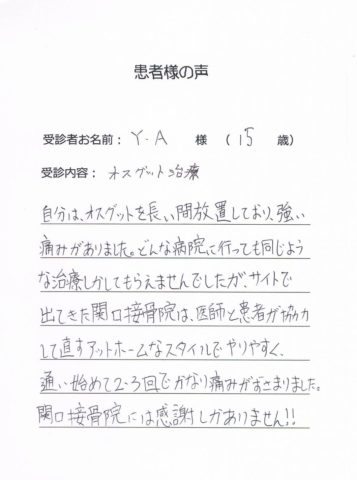 患者様の声
受診者お名前： Y.A 様 （ 15 歳）
受診内容： オスグット治療
自分は、オスグットを長い間放置しており、強い
痛みがありました。どんな病院に行っても同じよう
な治療しかしてもらえませんでしたが、サイトで
出てきた関口接骨院は、医師と患者が協力
して直すアットホームなスタイルでやりやすく、
通い始めて2-3回でかなり痛みがおさまりました。
関口接骨院には感謝しかありません!!